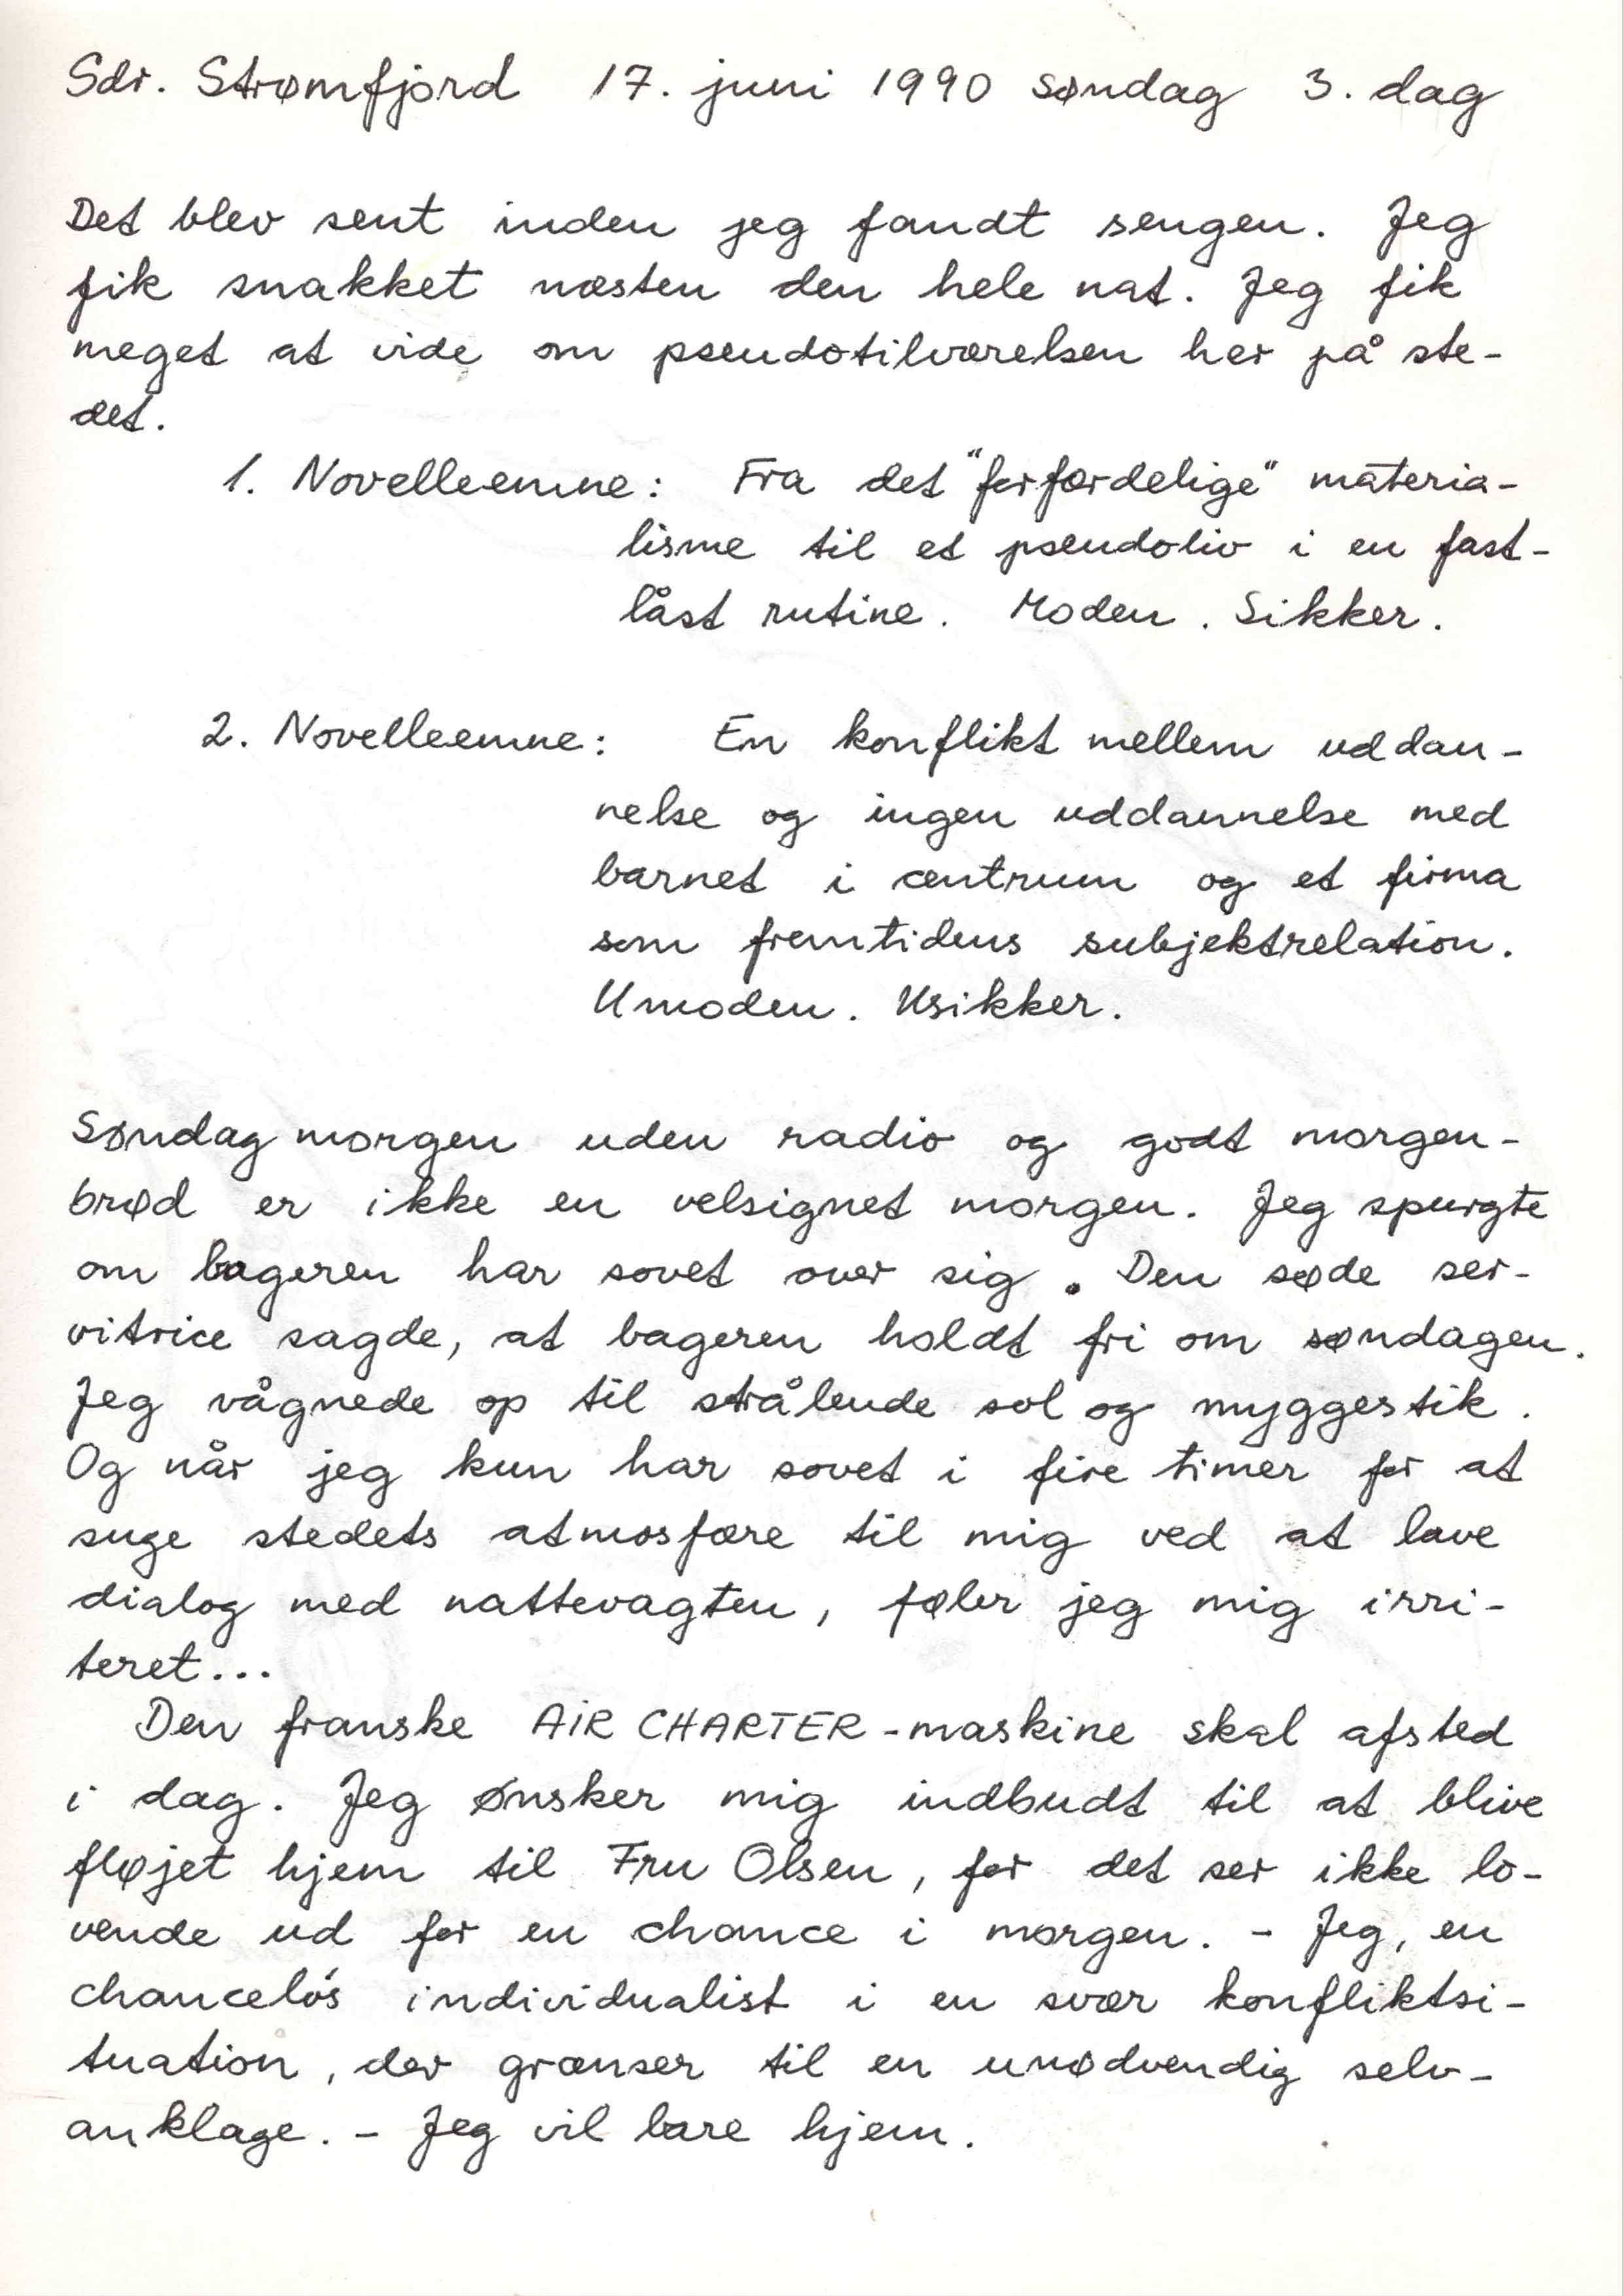 Sdr. Strømfjord 17. juni 1990 søndag 3. dag
Det blev sent inden jeg fandt sengen. Jeg
fik snakket næsten den hele nat. Jeg fik
meget at vide om pseudotilværelsen her på ste-
det.
1. Novelleemne: Fra det "forfærdelige" materia-
lisme til et pseudoliv i en fast-
låst rutine. Moden. Sikker.
2. Novelleemne: En konflikt mellem uddan-
nelse og ingen uddannelse med
barnet i centrum og et firma
som fremtidens subjektrelation.
Umoden. Usikker.
Søndag morgen uden radio og godt morgen-
brød er ikke en velsignet morgen. Jeg spurgte
om bageren har sovet over sig. Den søde ser-
vitrice sagde, at bageren holdt fri om søndagen.
Jeg vågnede op til strålende sol og myggestik.
Og når jeg kun har sovet i fire timer for at
suge stedets atmosfære til mig ved at lave
dialog med nattevagten, føler jeg mig irri-
teret...
Den franske AIR CHARTER-maskine skal afsted
i dag. Jeg ønsker mig indbudt til at blive
fløjet hjem til Fru Olsen, for det ser ikke lo-
vende ud for en chance i morgen. - Jeg, en
chanceløs individualist i en svær konfliktsi-
tuation, der grænser til en unødvendig selv-
anklage. - Jeg vil bare hjem.